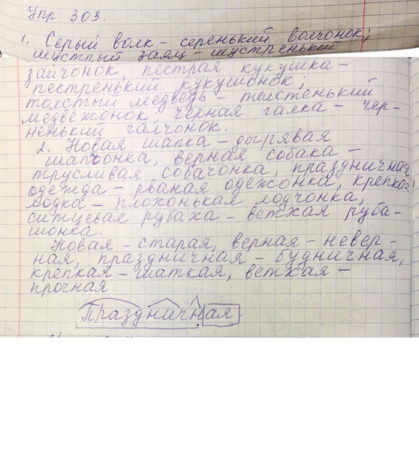 Упр. 303.
1. Серый волк – серенький волчонок;
шустрый заяц – шустренький
зайчонок, пестрая кукушка –
пестренький кукушонок;
толстый медведь – толстенький
медвежонок, черная галка – чер-
ненький галчонок.
2. Новая шапка – дырявая
шапчонка, верная собака –
трусливая собачонка, праздничная
одежда – рваная одежонка, крепкая
лодка – плохонькая лодчонка,
ситцевая рубаха – ветхая руба-
шонка.
Новая – старая, верная – невер-
ная, праздничная – будничная,
крепкая – шаткая, ветхая –
прочная.
Праздничная.